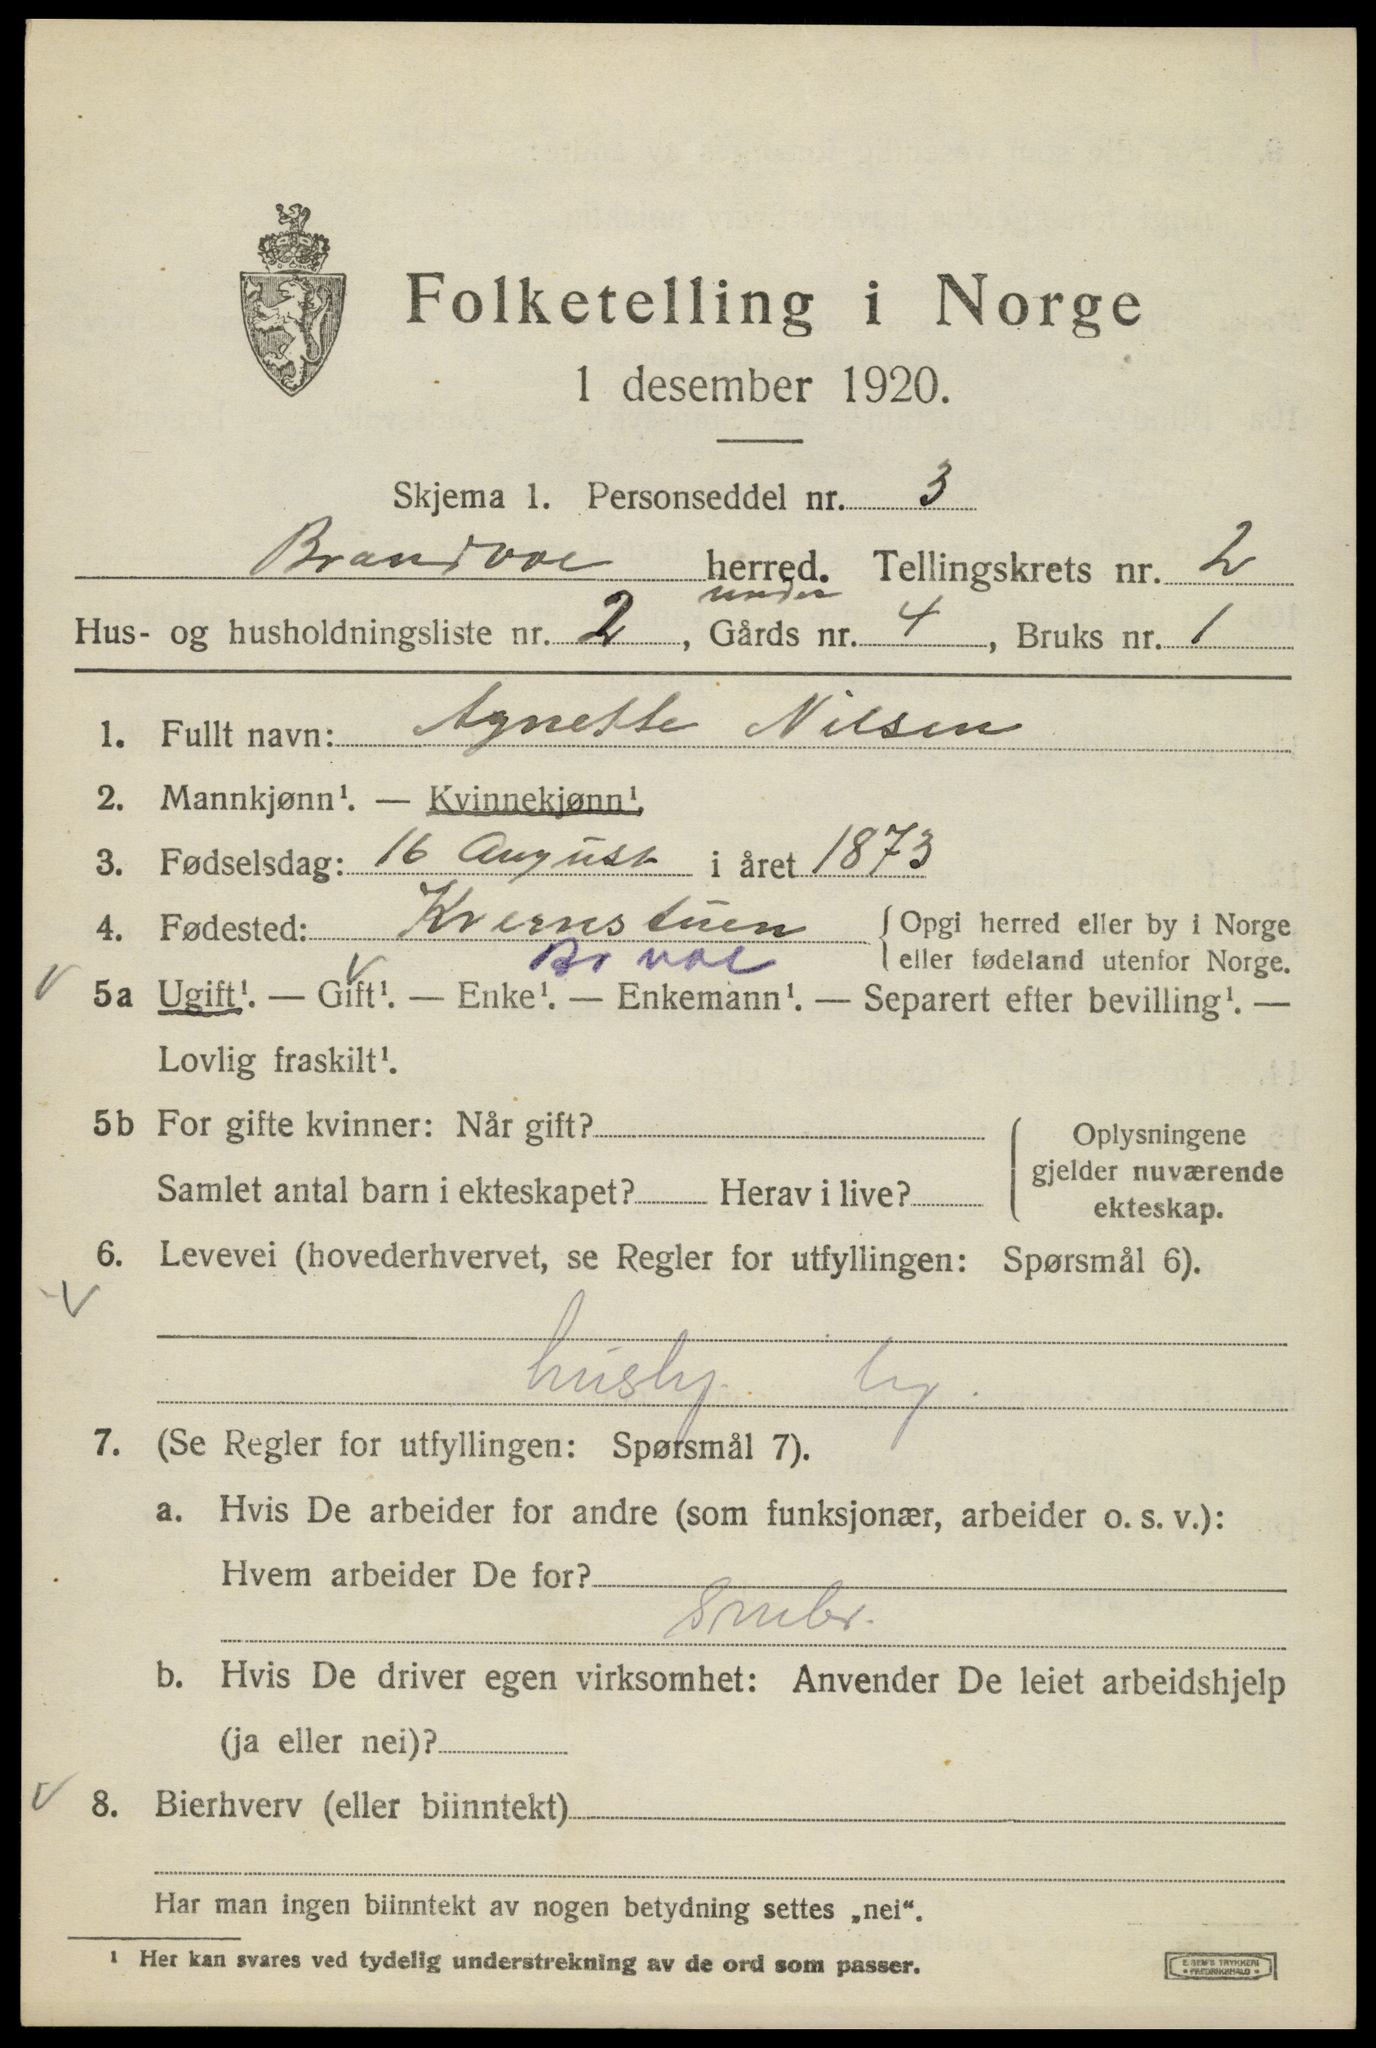 Folketelling i Norge
1 desember 1920.
Skjema 1. Personseddel nr. 3
Brandvoe herred. Tellingskrets nr. 2
under
Hus- og husholdningsliste nr. 2, Gårds nr. 4, Bruks nr. 1
1. Fullt navn: Agnette Nilsen
2. Mannkjønn¹. — Kvinnekjønn¹.
3. Fødselsdag: 16 August i året 1873
4. Fødested: Kvernstuen { Opgi herred eller by i Norge
Br voe eller fødeland utenfor Norge.
5a Ugift¹. — Gift¹. — Enke¹. — Enkemann¹. — Separert efter bevilling¹. —
Lovlig fraskilt¹.
5b For gifte kvinner: Når gift?
Samlet antal barn i ekteskapet? Herav i live?
Oplysningene
gjelder nuværende
ekteskap.
6. Levevei (hovederhvervet, se Regler for utfyllingen: Spørsmål 6).
husby.
7. (Se Regler for utfyllingen: Spørsmål 7).
a. Hvis De arbeider for andre (som funksjonær, arbeider o. s. v.):
Hvem arbeider De for?
Smbr.
b. Hvis De driver egen virksomhet: Anvender De leiet arbeidshjelp
(ja eller nei)?
8. Bierhverv (eller biinntekt)
Har man ingen biinntekt av nogen betydning settes „nei“.
¹ Her kan svares ved tydelig understrekning av de ord som passer.
E. SEM'S TRYKKERI
• FREDRIKSHALD •